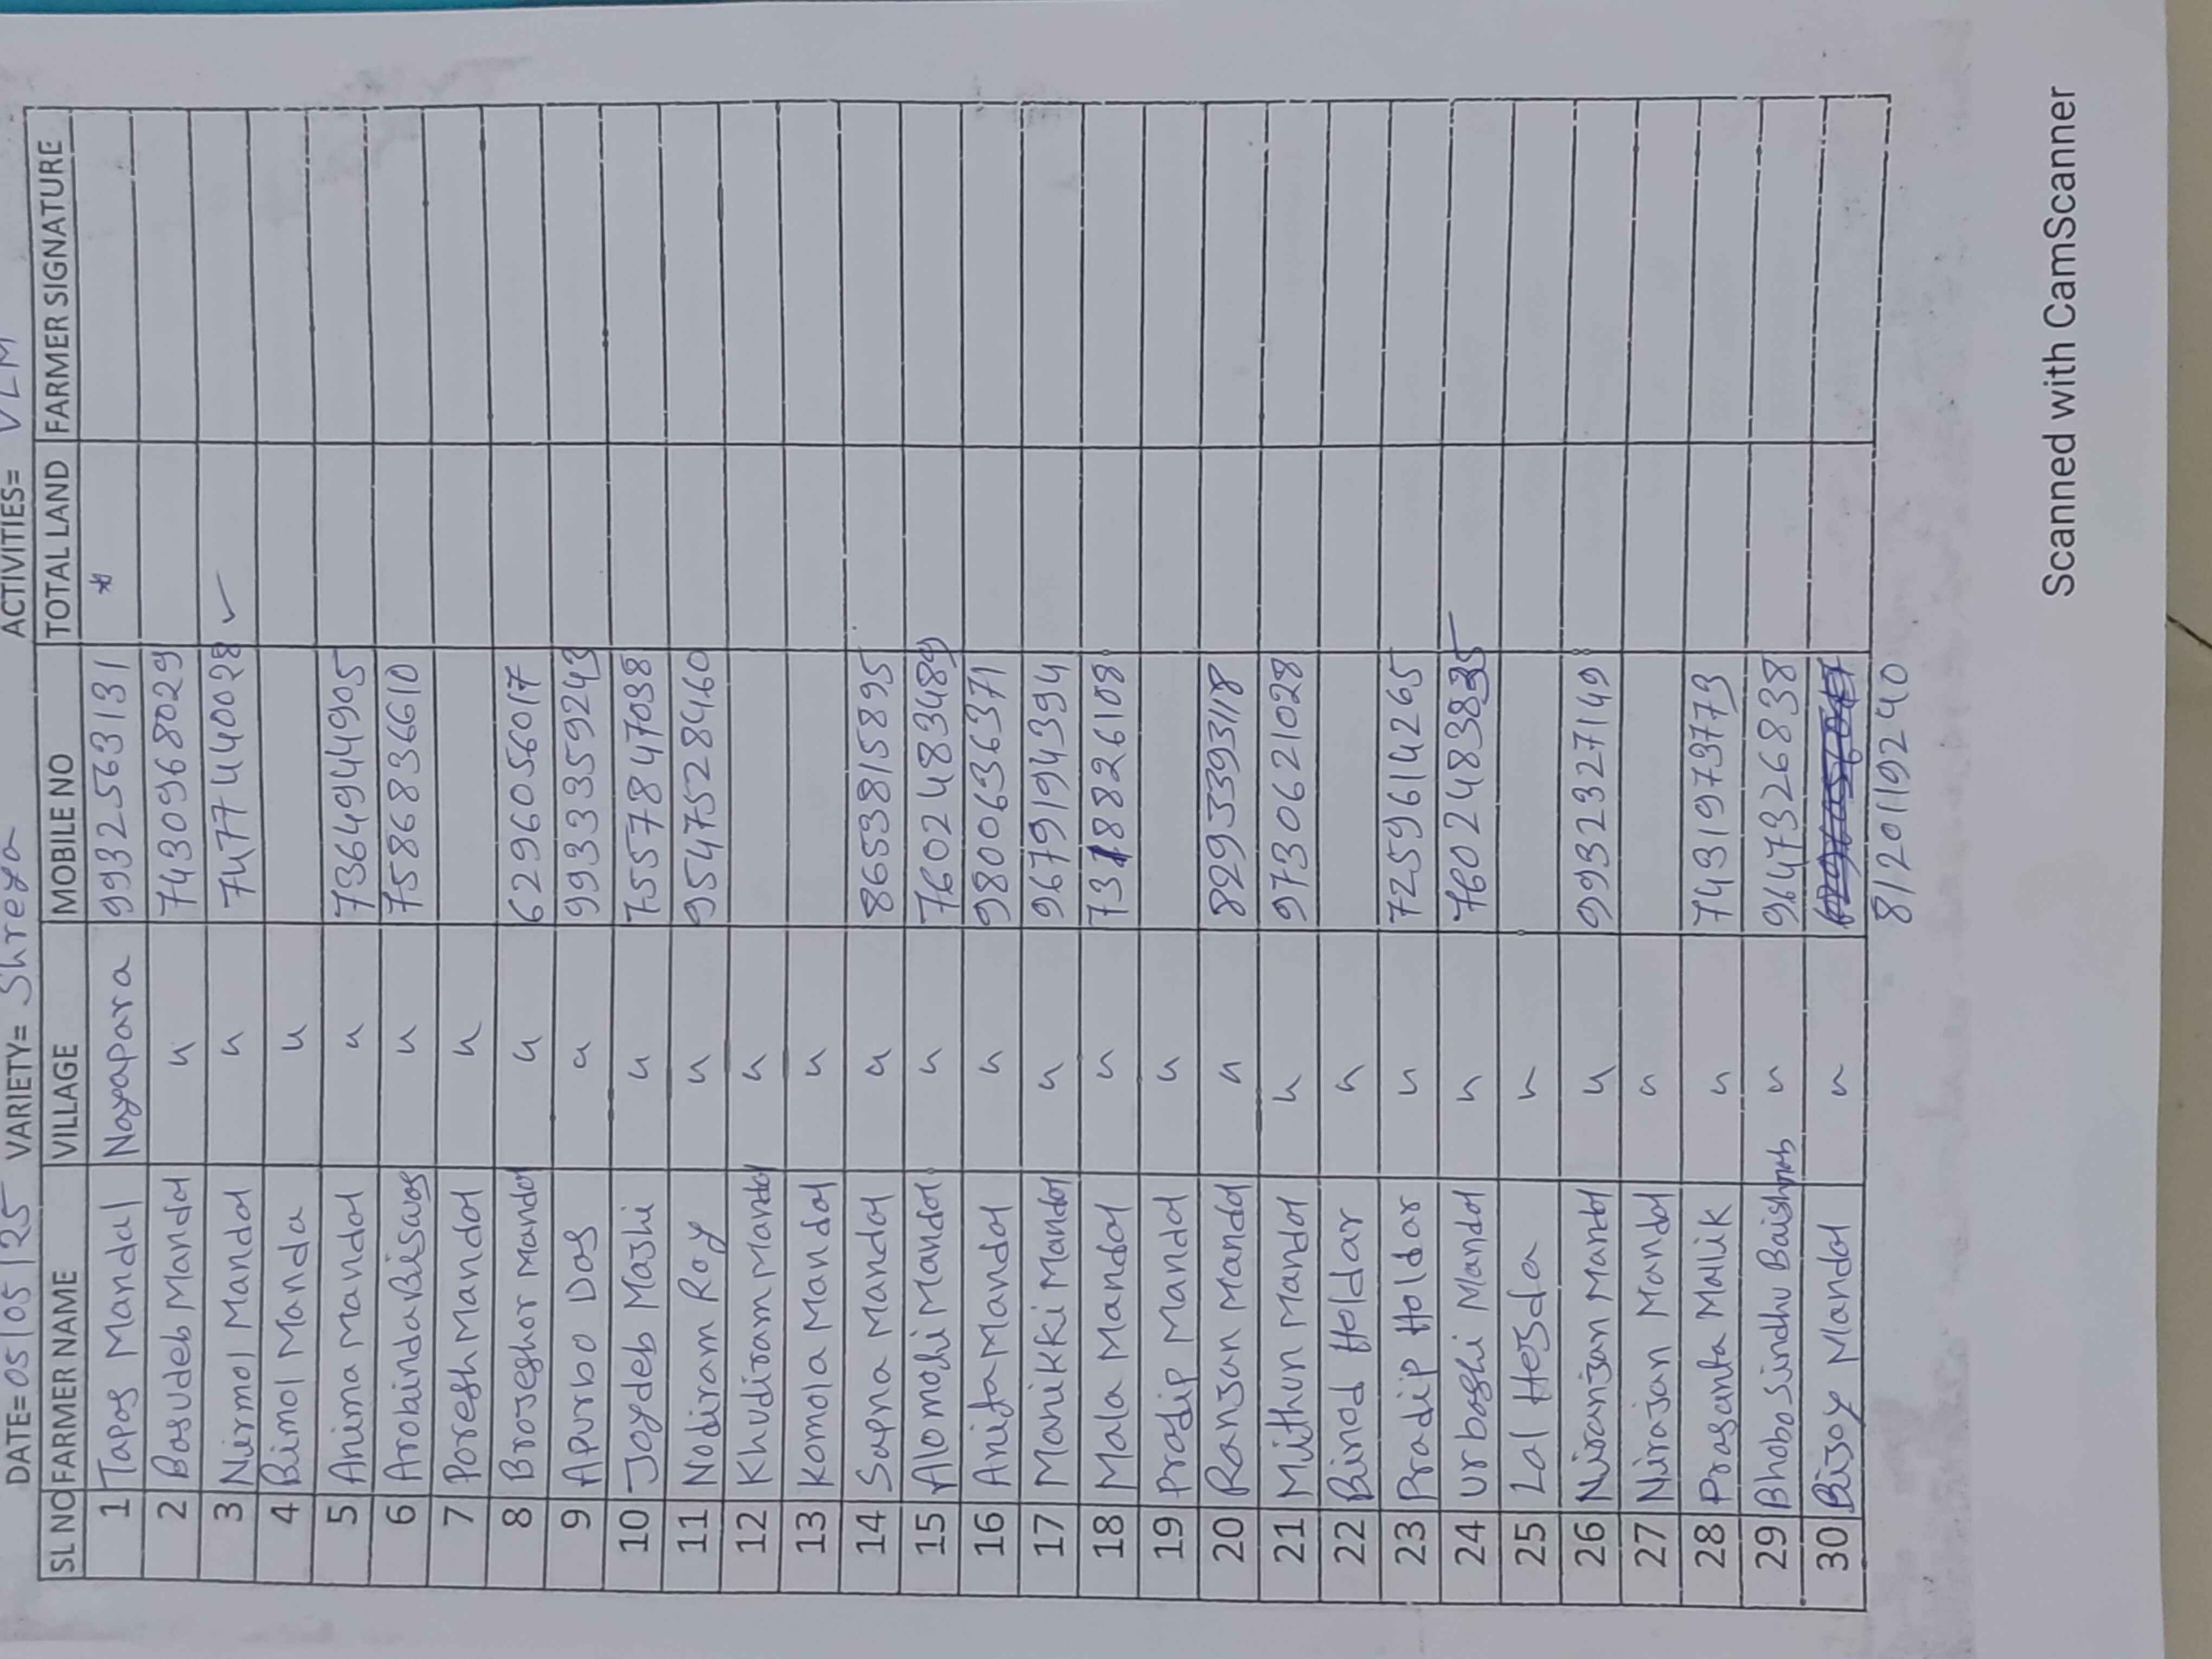 DATE= 05/05/25 VARIETY= Shreya ACTIVITIES= VLM
SL NO FARMER NAME VILLAGE MOBILE NO TOTAL LAND FARMER SIGNATURE
1 Tapos Mandal Nayapara 9932563131 *
2 Basudeb Mandol " 7430968029
3 Nirmol Mandol " 7477440028 ✓
4 Bimol Manda "
5 Anima Mandol " 7364944905
6 Arobinda Biswas " 7586836610
7 Poresh Mandol "
8 Brojeshor Mandol " 6296056017
9 Apurbo Das " 9933359243
10 Joydeb Majhi " 7557847038
11 Nodiram Roy " 9547528460
12 Khudiram Mandol "
13 Komola Mandol "
14 Sapna Mandol " 8653815895
15 Alomohi Mandol " 7602483489
16 Anita Mandol " 9800636371
17 Manikki Mandol " 9679194394
18 Mala Mandol " 7318826108
19 Prodip Mandol "
20 Ranjan Mandol " 8293393118
21 Mithun Mandol " 9730621028
22 Binod Holdar "
23 Pradip Holdar " 7259614265
24 Urboshi Mandol "
25 Lal Hesda "
26 Niranjan Mandol " 9932327149
27 Nirajan Mandol "
28 Prosanta Mallik " 7431973773
29 Bhobo Sindhu Baishnab " 9647326838
30 Bijoy Mandol "
8120119240
Scanned with CamScanner